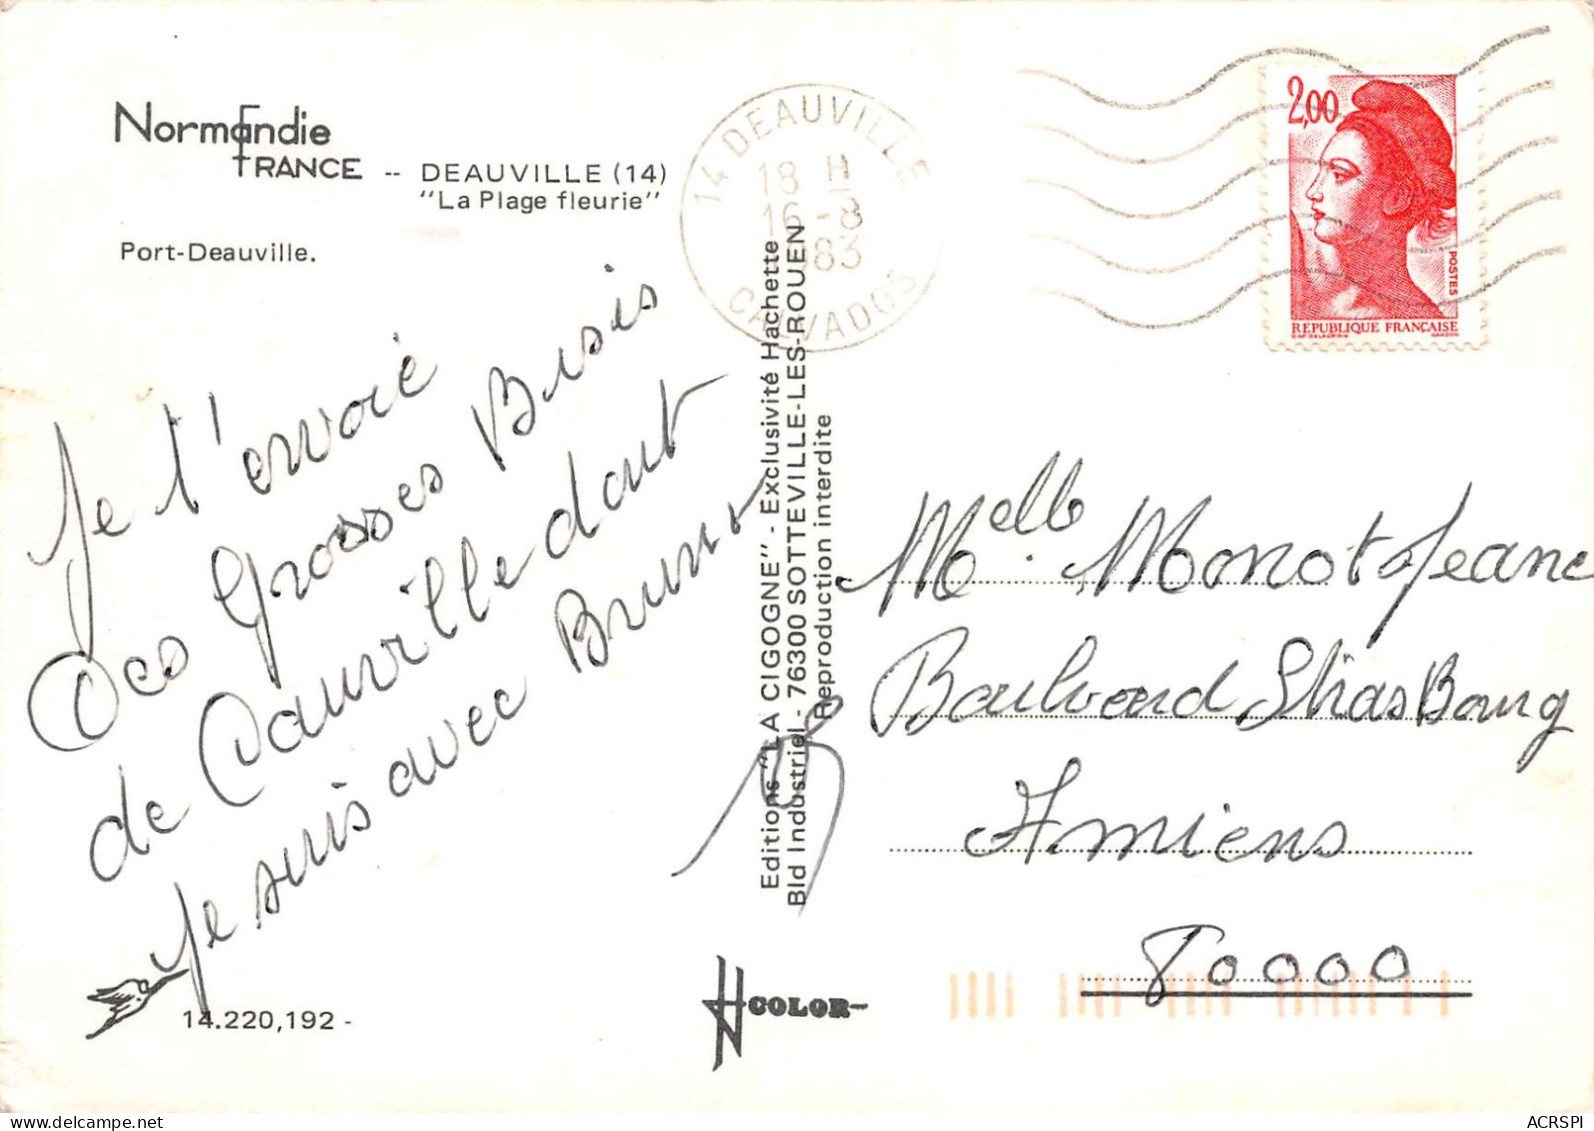 Normandie
FRANCE -- DEAUVILLE (14)
"La Plage fleurie"
Port-Deauville.
14 DEAUVILLE
18 H
16-8
1983
CALVADOS
2,00
POSTES
REPUBLIQUE FRANÇAISE
Je t'envoie
Des Grosses Bisis
de Dauville dont
Je suis avec Bruno
Editions "LA CIGOGNE" - Exclusivité Hachette
Bld Industriel - 76300 SOTTEVILLE-LES-ROUEN
Reproduction interdite
Melle Monot Jeane
Boulvard StrasBourg
Amiens
80000
14.220,192 -
COLOR
ACRSPI